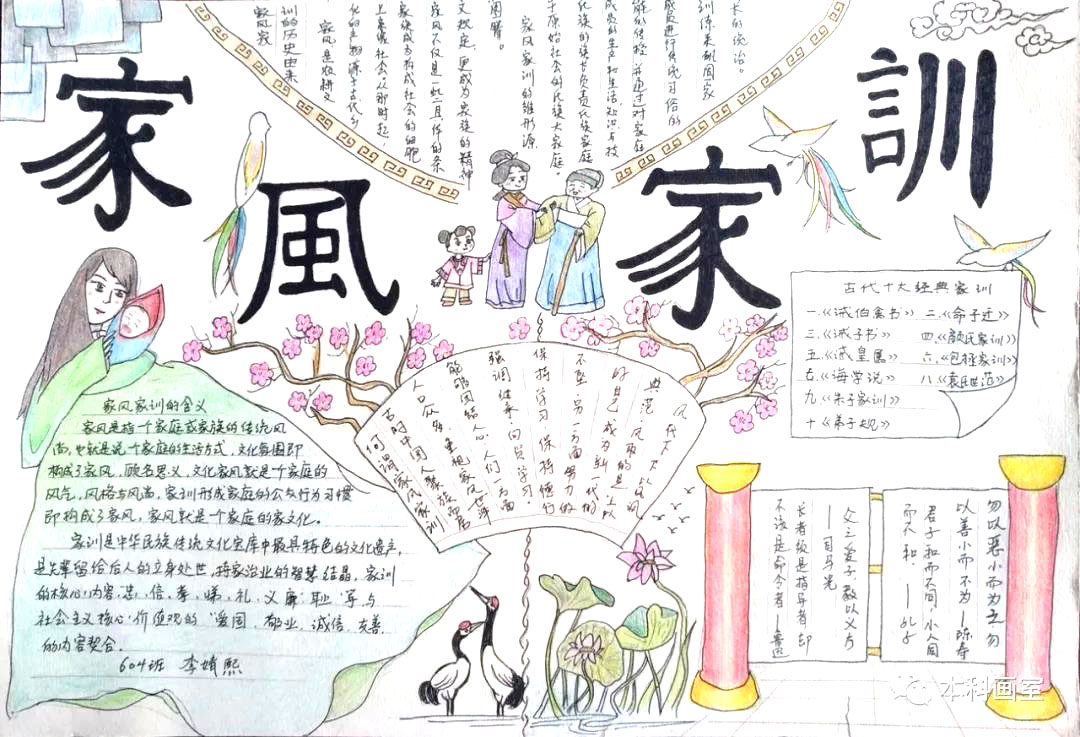 家風家訓
家风家
训的历史由来
家风是农耕文
化的产物源于古代乡
社会。从那时起,
家族成为构成社会的细胞
家风不仅是一些
文规定,更成为家族的精神
家风家训的雏形源
于原始社会的氏族大家庭。
氏族的族长负责氏族家庭
成员的生产和生活知识与技
能的传授,并通过对家庭
成员进行传统习俗的
训体系巩固家
长的统治。
古代十大经典家训
一.《诫伯禽书》 二.《命子迁》
三.《诫子书》 四.《颜氏家训》
五.《诫皇属》 六.《包拯家训》
七.《诲学说》 八.《袁氏世范》
九.《朱子家训》
十《弟子规》
家风家训的含义
家风是指一个家庭或家族的传统风
尚,也就是说一个家庭的生活方式,文化氛围即
构成了家风,顾名思义,文化家风就是一个家庭的
风气,风格与风尚,家训形成家庭的公众行为习惯
即构成了家风,家风就是一个家庭的家文化。
家训是中华民族传统文化宝库中最具特色的文化遗产,
是先辈留给后人的立身处世,持家治业的智慧结晶,家训
的核心内容:忠、信、孝、悌、礼、义、廉、耻等与
社会主义核心价值观的"爱国、敬业、诚信、友善
的内容契合。
604班 李婧熙
何谓家风家训
古时中国人聚族而居
人口众多,重视家风世泽
能够团结人心。人们一方面
强调继承,向贤学习
保持学习,保持德行
不坠,另一方面努力的
好自己成为新一代的
典范
勿以恶小而为之,勿
以善小而不为 ——陈寿
君子和而不同,小人同
而不和。——孔子
父之爱子,教以义方
——司马光
长者须是指导者却
不该是命令者——鲁迅
本科画室